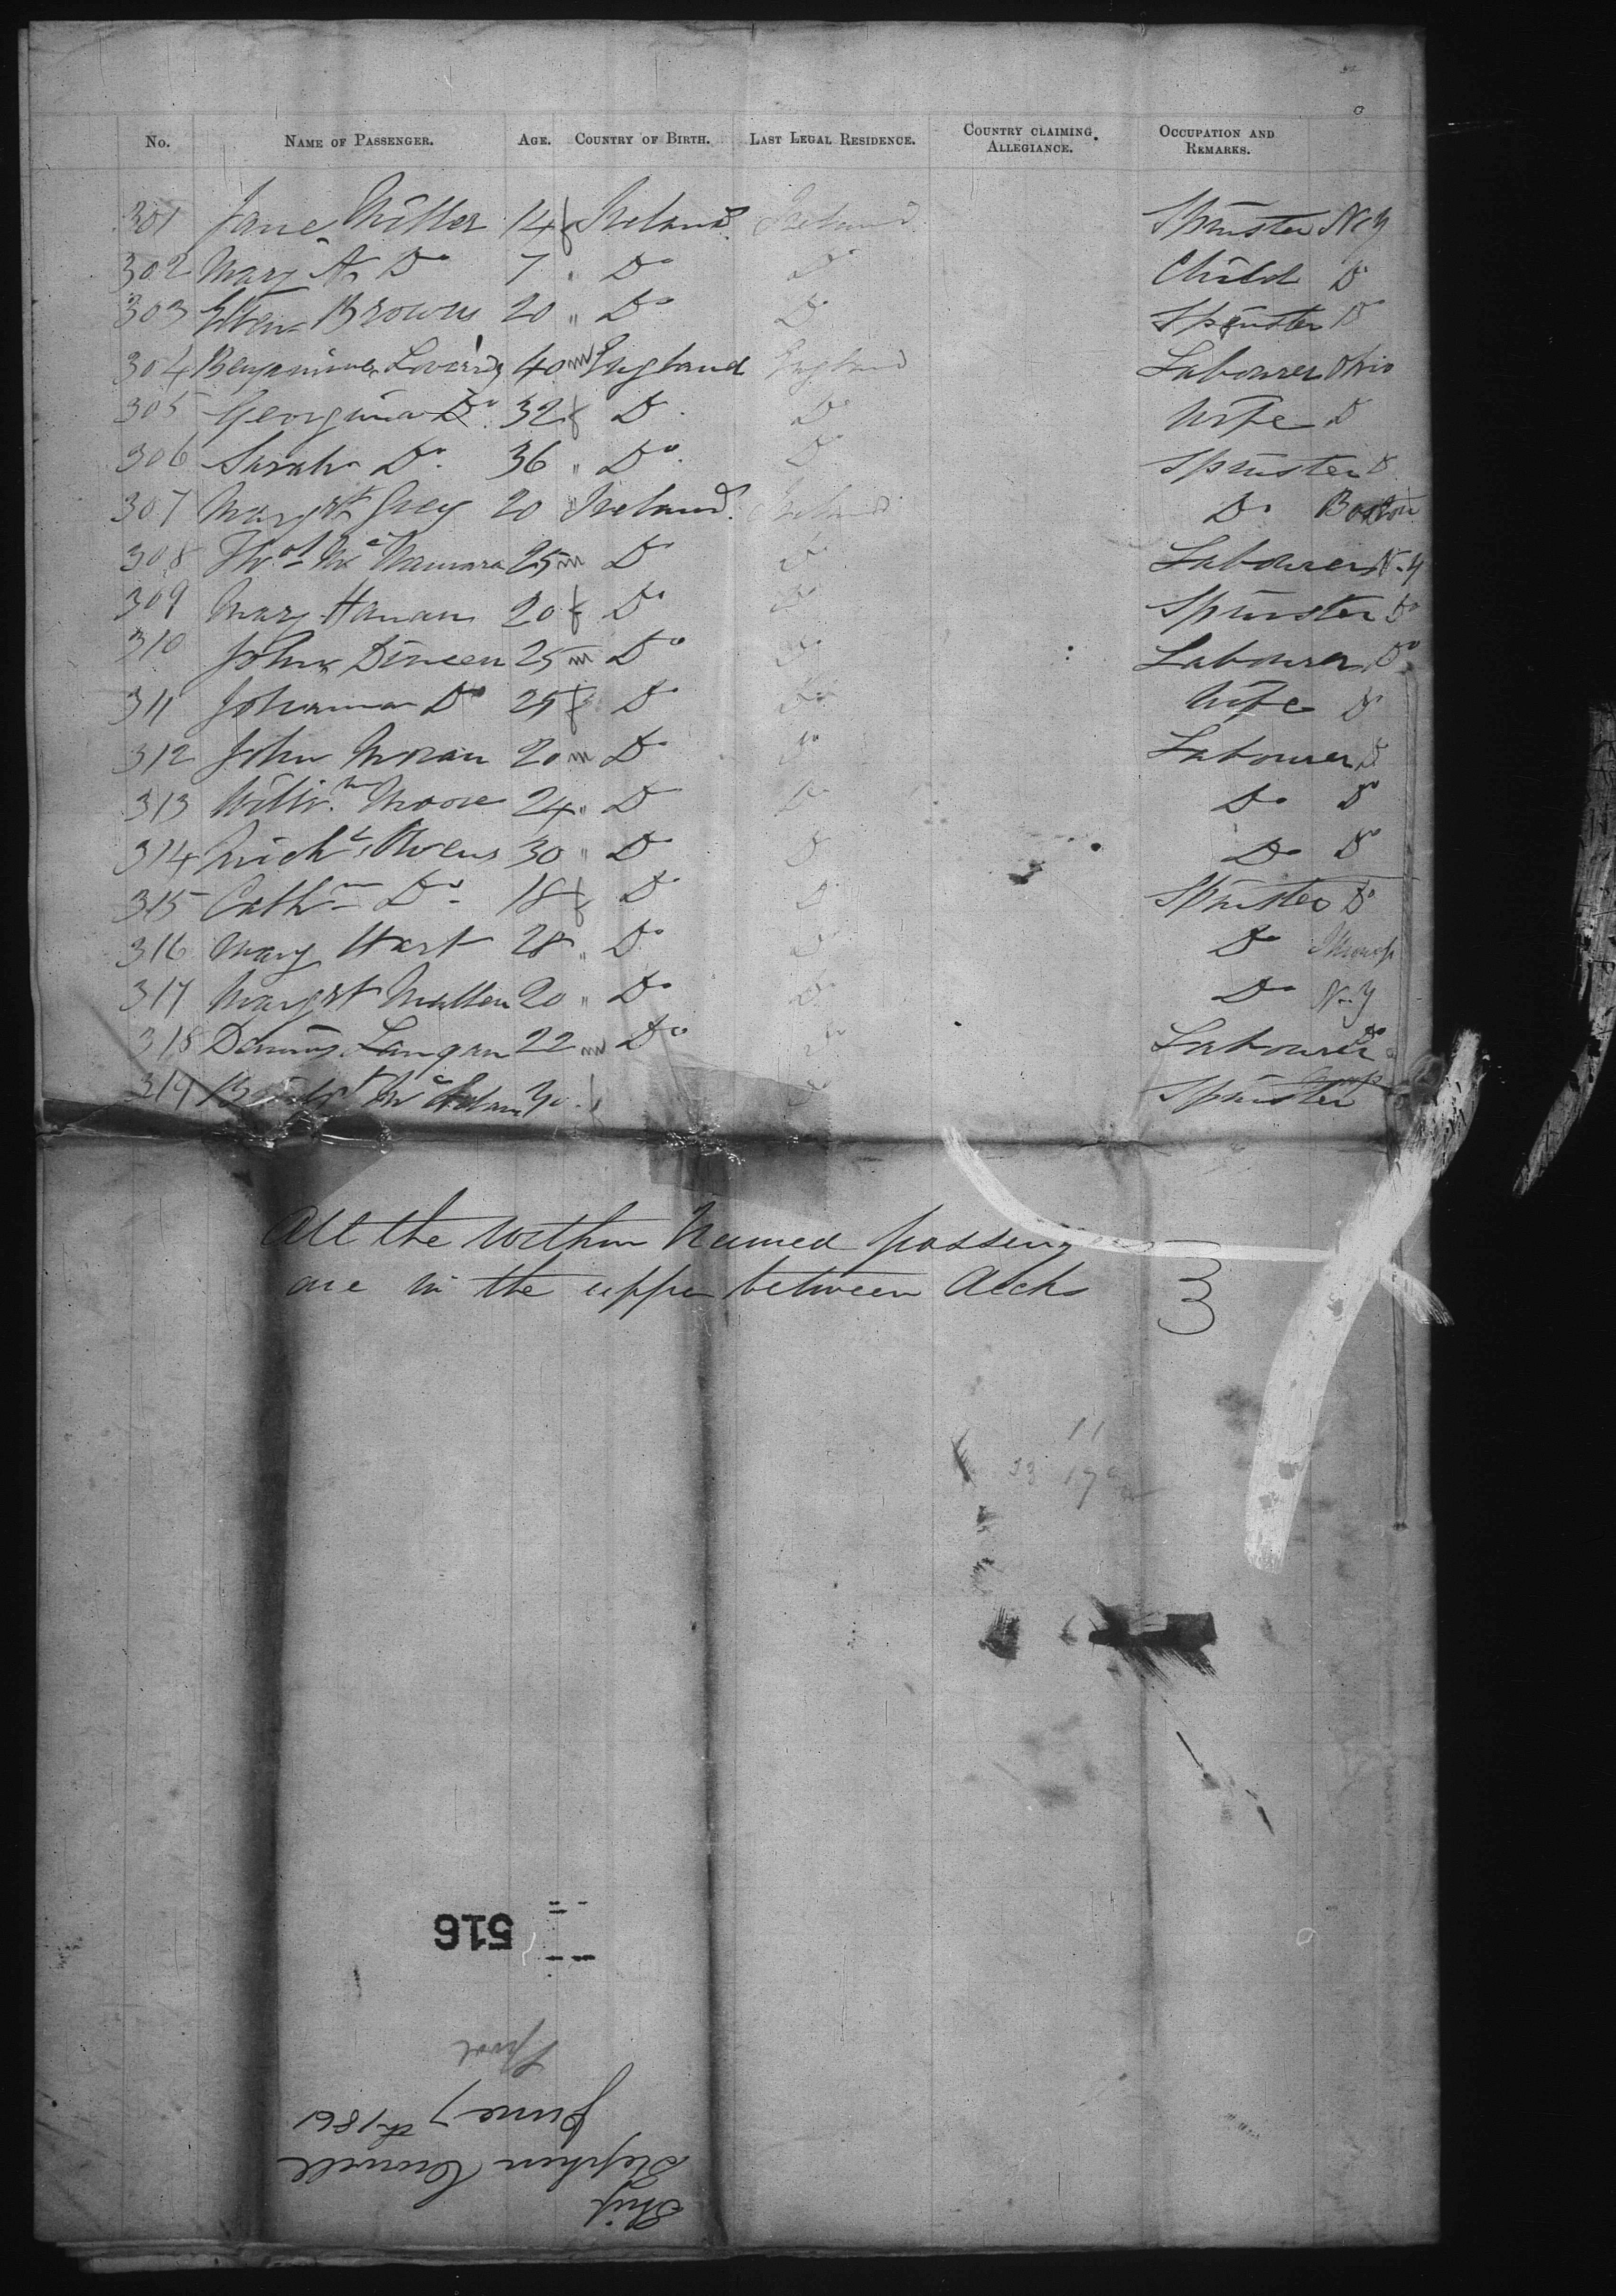 No. NAME OF PASSENGER. AGE. COUNTRY OF BIRTH. LAST LEGAL RESIDENCE. COUNTRY CLAIMING ALLEGIANCE. OCCUPATION AND REMARKS.
301 Jane Miller 14 f Ireland Ireland Spinster N.Y
302 Mary A. Do 7 " Do Do Child Do
303 Ellen Brown 20 " Do Do Spinster Do
304 40 m England England Labourer Ohio
305 Georgina Do 32 f Do Do Wife Do
306 Sarah Do 36 " Do Do Spinster Do
307 Margrt Grey 20 " Ireland Ireland Do Boston
308 Thos Mc Namara 25 m Do Do Labourer N.Y
309 Mary Hanan 20 f Do Do Spinster Do
310 John Dineen 25 m Do Do Labourer Do
311 Johanna Do 25 f Do Do Wife Do
312 John Moran 20 m Do Do Labourer Do
313 Willm Moore 24 " Do Do Do Do
314 Michl Owens 30 " Do Do Do Do
315 Cathn Do 18 f Do Do Spinster Do
316 Mary Hart 28 " Do Do Do
317 Margrt Mullen 20 " Do Do Do N.Y
318 Dennis Langan 22 m Do Do Labourer Do
319 Mc Adam 30 f Do Spinster
All the within Named passengers
are in the upper between decks
3
11
33 17
516
Lpool
June 7th 1861
Stephen Crowell
Ship